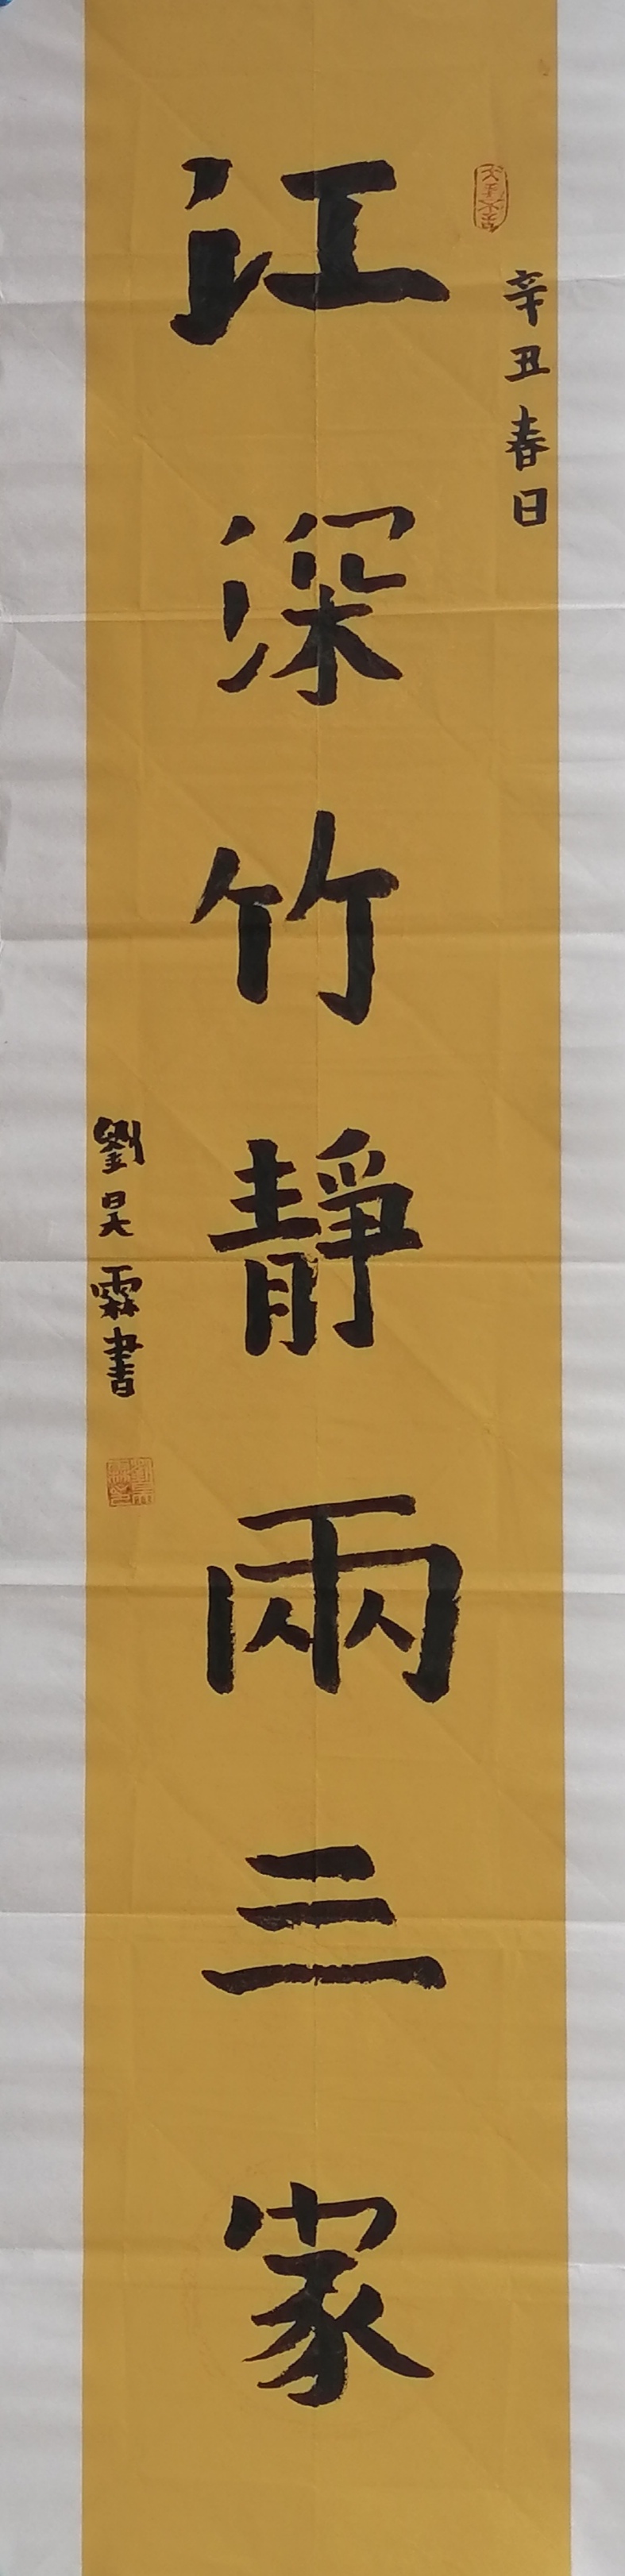 辛丑春日
江深竹靜兩三家
劉昊霖書